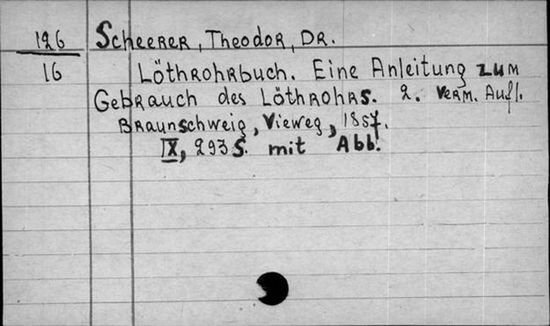 126 Scheerer, Theodor, Dr.
16 Löthrohrbuch. Eine Anleitung zum
Gebrauch des Löthrohrs. 2. verm. Aufl.
Braunschweig, Vieweg, 1857.
IX, 293 S. mit Abb.